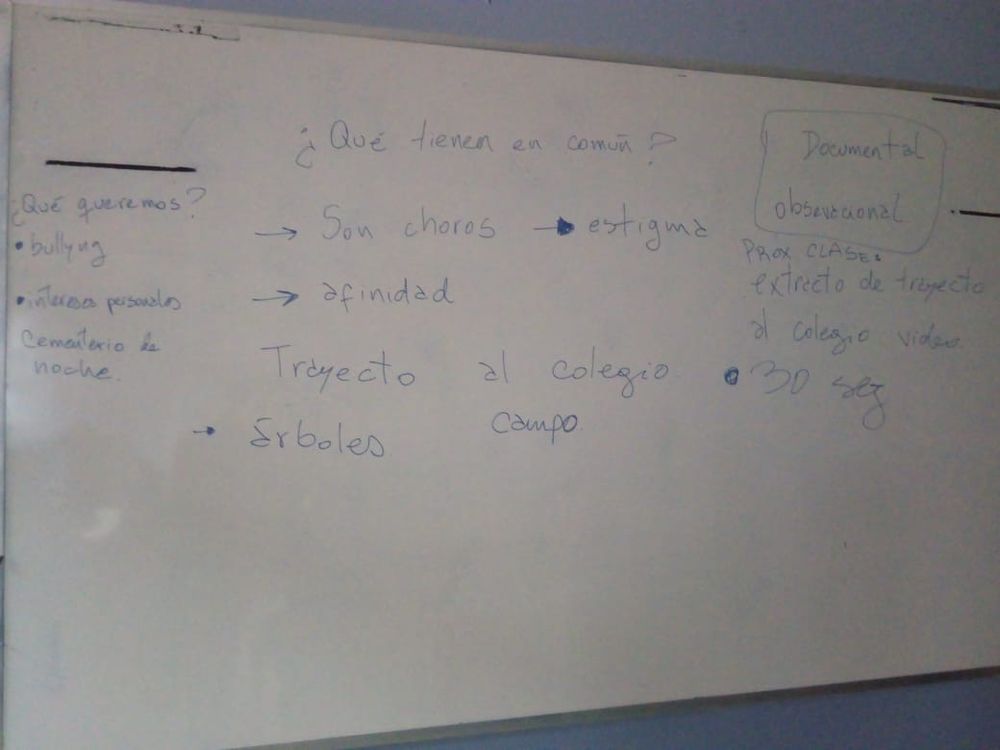 ¿Qué queremos?
• bullyng
• intereses personales
Cementerio de
noche.
¿Qué tienen en común?
→ Son choros → estigma
→ afinidad
Trayecto al colegio
• árboles campo
Documental
obsevacional
PROX CLASE:
extracto de trayecto
al colegio video.
• 30 seg